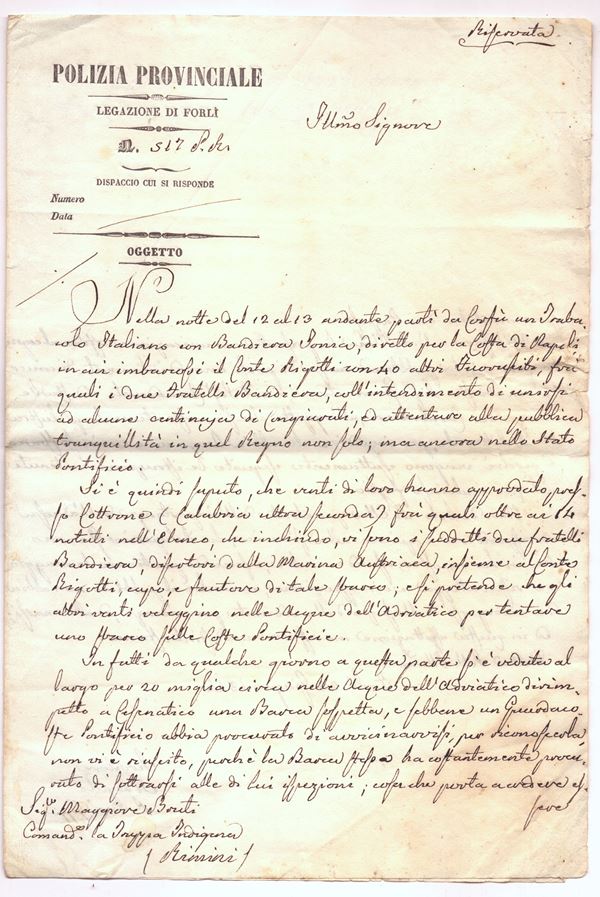 Riservata
POLIZIA PROVINCIALE
LEGAZIONE DI FORLÌ
N. 517 P. R.
DISPACCIO CUI SI RISPONDE
Numero
Data
OGGETTO
Illmo Signore
Nella notte del 12 al 13 andante partì da Corfù un Traba-
colo Italiano con Bandiera Jonia, diretto per la Costa di Napoli
in cui imbarcossi il Conte Rigotti con 40 altri Fuorusciti, fra i
quali i due Fratelli Bandiera, coll'intendimento di unirsi
ad alcune centinaja di Congiurati, ed attentare alla pubblica
tranquillità in quel Regno non solo; ma ancora nello Stato
Pontificio.
Si è quindi saputo, che venti di loro hanno approdato, pres-
so Cottrone (Calabria ultra seconda) fra i quali oltre ai 14
notati nell'Elenco, che inchiudo, vi sono i suddetti due fratelli
Bandiera, disertori dalla Marina Austriaca, insieme al Conte
Rigotti, capo, e fautore di tale sbarco; e si pretende che gli
altri venti veleggino nelle Acque dell'Adriatico per tentare
uno sbarco sulle Coste Pontificie.
In fatti da qualche giorno a questa parte si è veduta al
largo per 20 miglia circa nelle Acque dell'Adriatico dirim-
petto a Cesenatico una Barca sospetta, e sebbene un Guardaco-
ste Pontificio abbia procurato di avvicinarvisi, per riconoscerla,
non vi è riuscito, perchè la Barca stessa ha costantemente procu-
rato di sottrarsi alle di lui ispezioni; cosa che porta a credere es-
sere
Sigr. Maggiore Bonti
Comande. la Truppa Indigena
(Rimini)